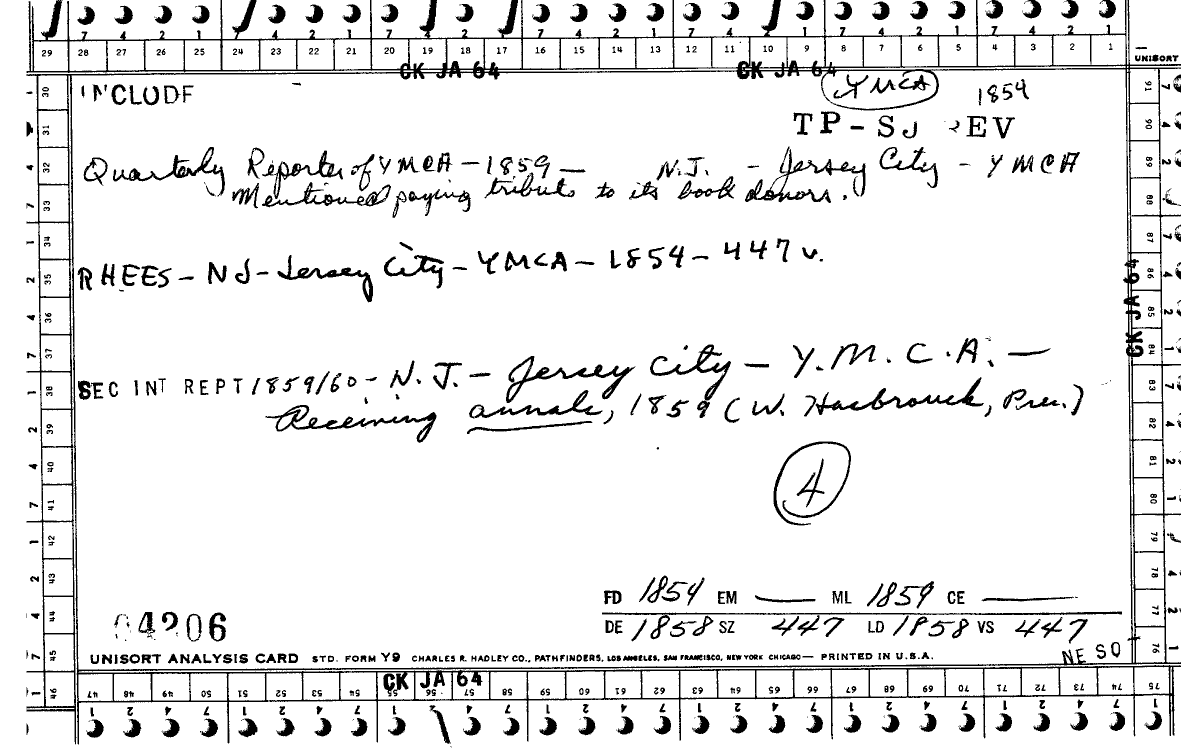 7 4 2 1 7 4 2 1 7 4 2 1 7 4 2 1 7 4 2 1 7 4 2 1
29 28 27 26 25 24 23 22 21 20 19 18 17 16 15 14 13 12 11 10 9 8 7 6 5 4 3 2 1
UNISORT
CK JA 64 CK JA 64
INCLUDE YMCA 1854
TP-SJ REV
Quarterly Reporter of YMCA - 1859 - N.J. - Jersey City - YMCA
Mentioned paying tribute to its book donors.
RHEES - NJ - Jersey City - YMCA - 1854 - 447 v.
CK JA 64
SEC INT REPT 1859/60 - N.J. - Jersey City - Y.M.C.A. -
Receiving annals, 1859 (W. Hasbrouck, Pres.)
4
FD 1854 EM — ML 1859 CE —
DE 1858 SZ 447 LD 1858 VS 447
04206
UNISORT ANALYSIS CARD STD. FORM Y9 CHARLES R. HADLEY CO., PATHFINDERS, LOS ANGELES, SAN FRANCISCO, NEW YORK CHICAGO — PRINTED IN U.S.A.
NE SO
CK JA 64
30 31 32 33 34 35 36 37 38 39 40 41 42 43 44 45 46
91 90 89 88 87 86 85 84 83 82 81 80 79 78 77 76 75
47 48 49 50 51 52 53 54 55 56 57 58 59 60 61 62 63 64 65 66 67 68 69 70 71 72 73 74